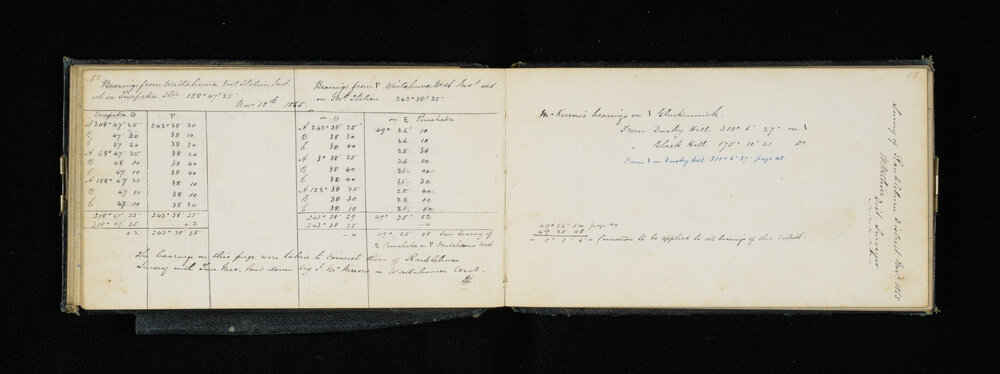 55
Bearings from Waitahuna Trot. Station Inst.
set on Tuapeka Stn 128° 47' 25"
Nov. 18th 1865.
Tuapeka ⊙ P
A 308° 47' 25 243° 38' 20
B 47 20 38 10
C 47 40 38 30
A 68° 47 25 38 20
B 48 00 38 40
C 47 10 38 40
A 188° 47 25 38 10
B 47 10 38 10
C 47 10 38 20
308° 47' 23 243° 38' 23
308° 47' 25 + 2
+ 2 243° 38' 25
Bearings from P Waitahuna West Inst set
on Trot. Station 243° 38' 25"
on ⊙ on E Pomahaka
A 243° 38' 25 49° 26' 10
B 38 30 26 10
C 38 40 25 30
A 3° 38 25 26 00
B 38 40 26 00
C 38 40 25 30
A 123° 38 25 25 40
B 38 30 26 00
C 38 20 26 00
243° 38' 29 49° 25' 52
243° 38 25 - 4
- 4 49° 25' 48 True bearing of
E Pomahaka on P Waitahuna West.
The bearings on this page were taken to connect
Survey with True Mer. laid down by J. McKerrow in Waitahuna West.
56
McKerrow's bearings on
From Dusky Hill 310° 5' 27" on
" Black Hill 175° 10' 21 Do.
From on Dusky Hill 310° 6' 37" page 48.
49° 26' 54 page 44
49 25 48
- 0° 1' 5" = Correction to be applied to all bearings of this district.
Survey of District Nov. 1865
Dist. Surveyor